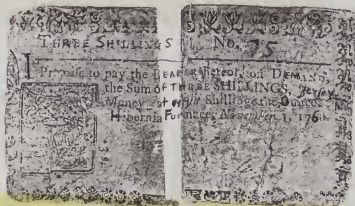 THREE SHILLINGS No. 75
I Promise to pay the BEARER thereof, on DEMAND,
the Sum of THREE SHILLINGS, Jersey
Money, at Shillings the Ounce.
Hibernia Furnace, November 1, 176